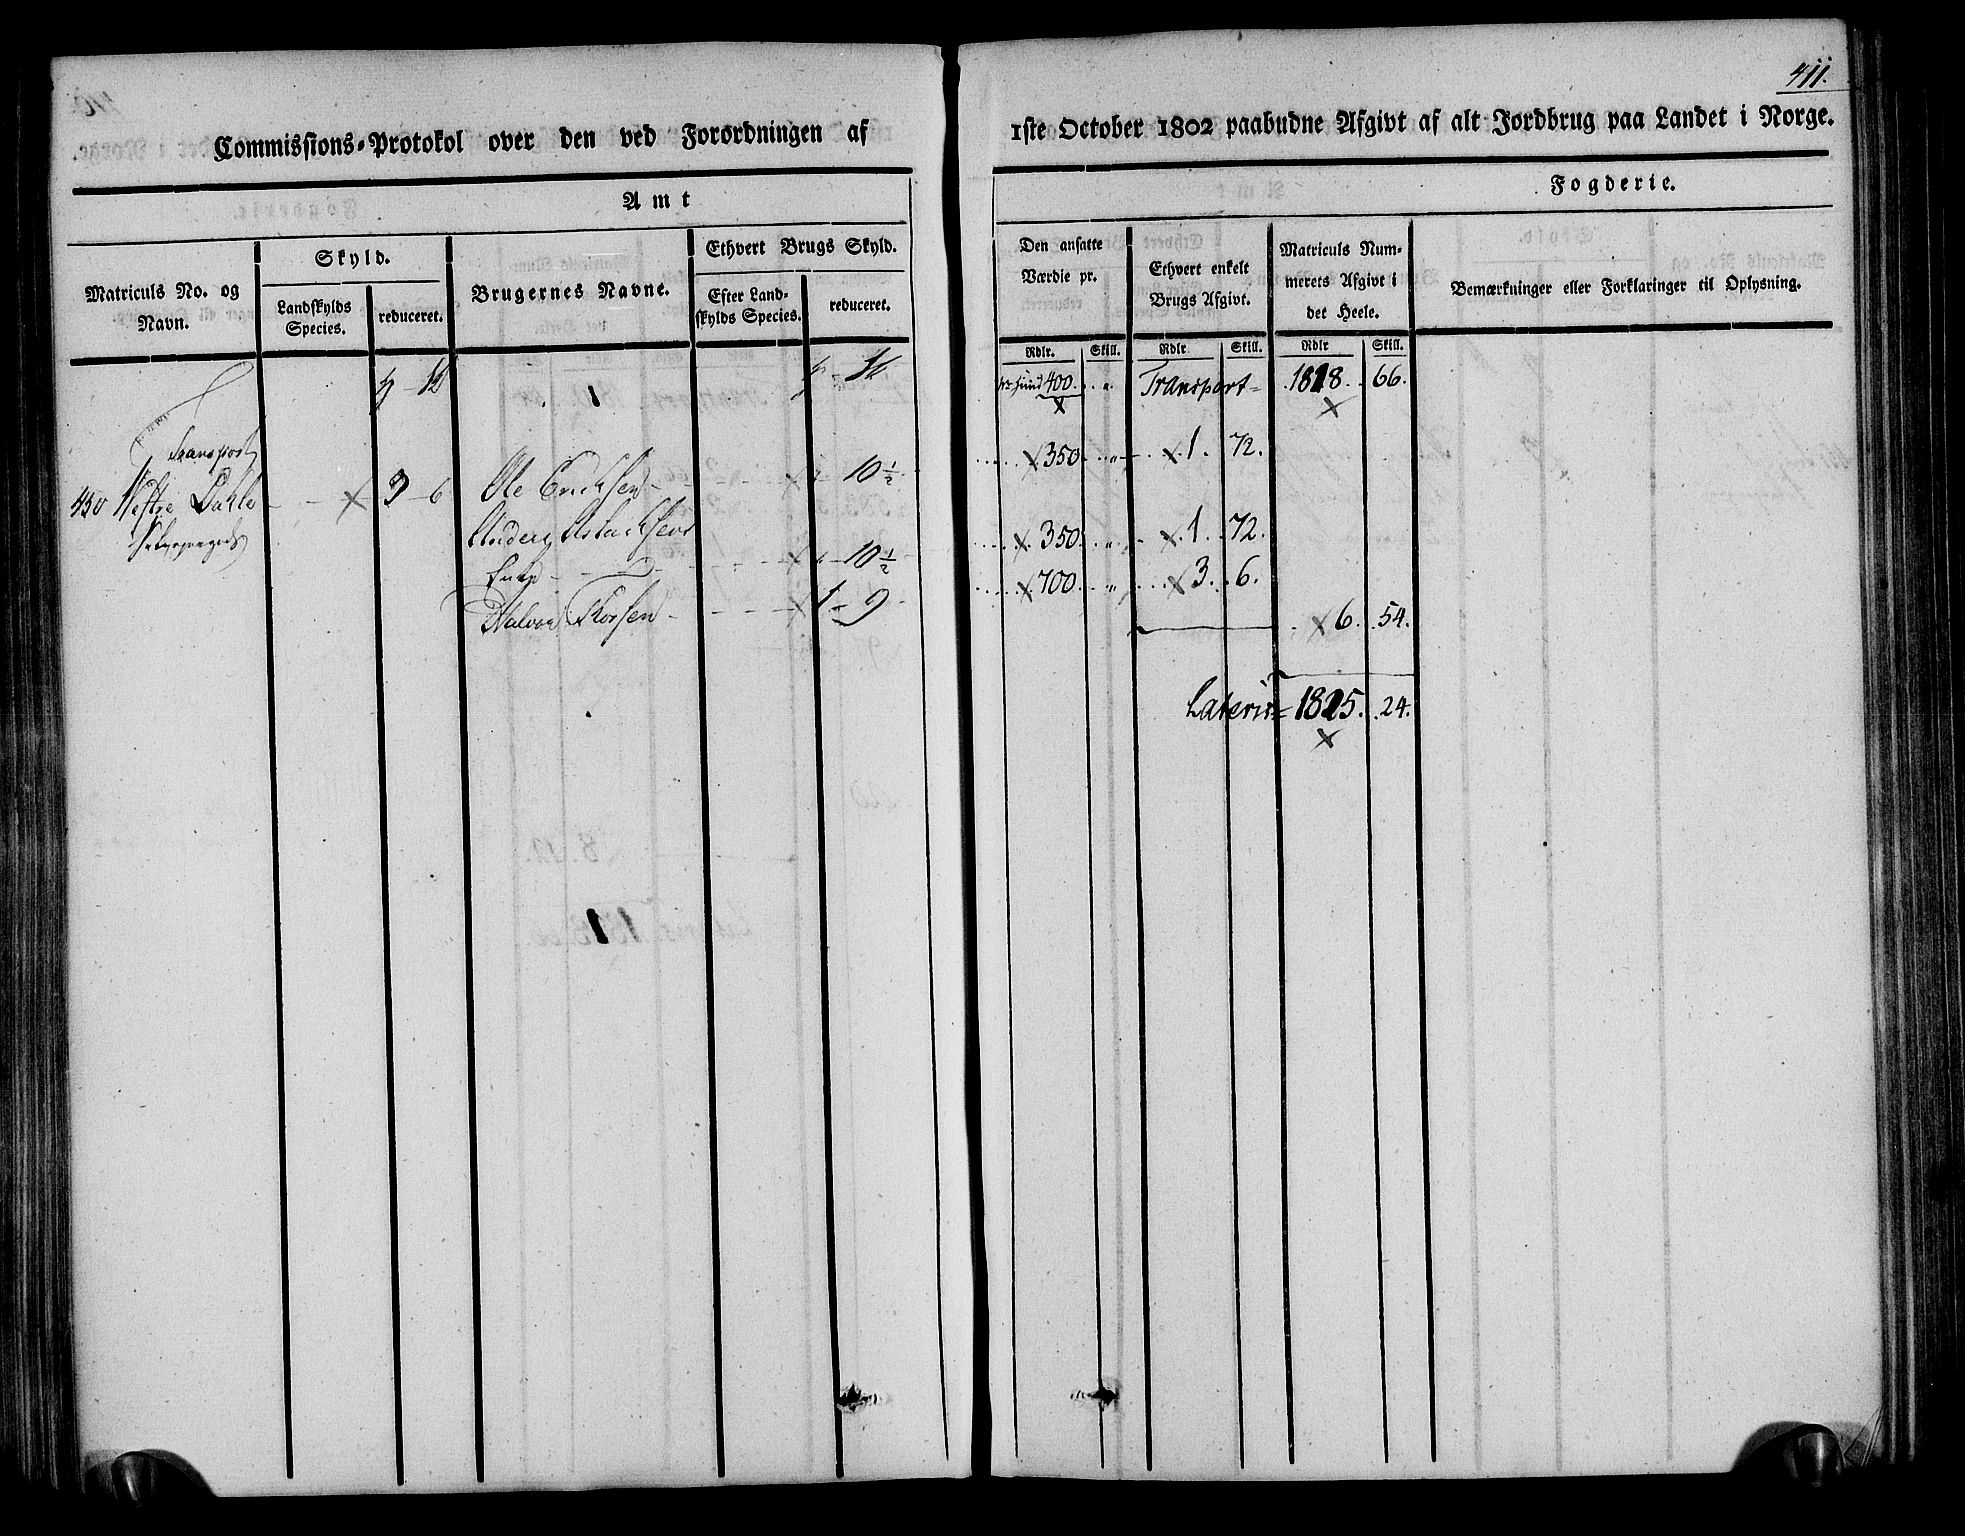 411.
Commissions-Protokol over den ved Forordningen af 1ste October 1802 paabudne Afgivt af alt Jordbrug paa Landet i Norge.
Amt
Fogderie.
Matriculs No. og Navn.
Skyld.
Landskylds Species.
reduceret.
Brugernes Navne.
Ethvert Brugs Skyld.
Efter Landskylds Species.
reduceret.
Den ansatte Værdie pr.
Ethvert enkelt Brugs Afgivt.
Matriculs Nummerets Afgivt i det Heele.
Bemærkninger eller Forklaringer til Oplysning.
Rdlr. Skill. Rdlr Skill. Rdlr Skill.
400. Transport 1818. 66.
Transport
430 Vestre Dahle 3 6 Ole Ericksen 10 1/2 350 1. 72.
Anders Aslacksens
Enke 10 1/2 350 1. 72.
Halvor Thorsen 1 9 700 3. 6.
6. 54.
Lateris 1825. 24.